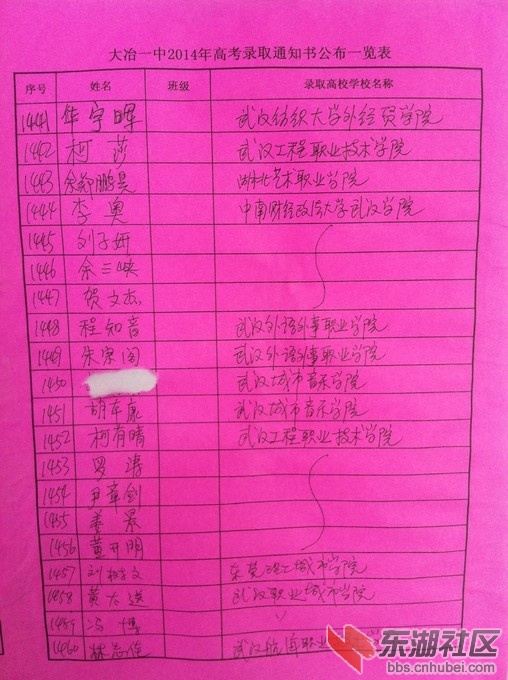 大冶一中2014年高考录取通知书公布一览表
序号 姓名 班级 录取高校学校名称
1441 华宇晖 武汉纺织大学外经贸学院
1442 柯莎 武汉工程职业技术学院
1443 余郑鹏昊 湖北艺术职业学院
1444 李奥 中南财经政法大学武汉学院
1445 刘子妍
1446 余三峡
1447 贺文杰
1448 程知音 武汉外语外事职业学院
1449 朱家阁 武汉外语外事职业学院
1450 武汉城市音乐学院
1451 胡车康 武汉城市音乐学院
1452 柯有晴 武汉工程职业技术学院
1453 罗涛
1454 尹章剑
1455 姜景
1456 黄开明
1457 刘树文 城市学院
1458 黄大送 武汉职业城市学院
1459 冯博
1460 林志伟 武汉航海职业
东湖社区
bbs.cnhubei.com